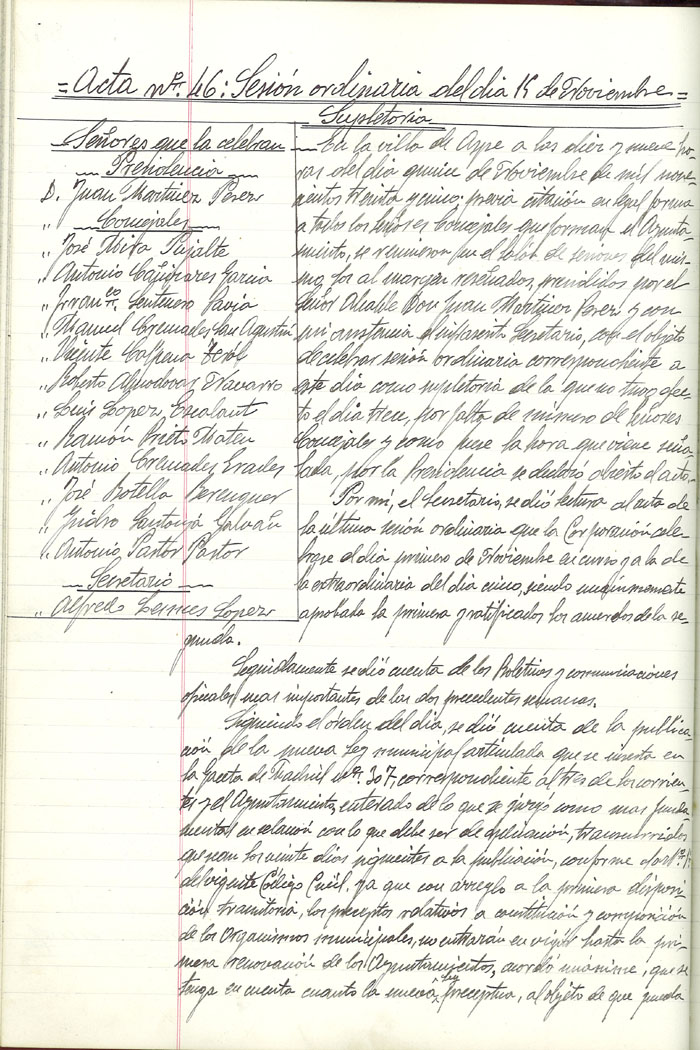 = Acta nº. 46: Sesión ordinaria del dia 15 de Noviembre =
Supletoria
Señores que la celebran
Presidencia
D. Juan Martinez Perez
Concejales
" José Mira Pujalte
" Antonio Cañizares Garcia
" Franco. Centenero Pavia
" Manuel Cremades San Agustin
" Vicente Calpena Terol
" Roberto Almodovar Navarro
" Luis Lopez Escalant
" Ramón Prieto Mateu
" Antonio Cremades Erades
" José Botella Berenguer
" Isidro Santonja Galván
" Antonio Pastor Pastor
Secretario
" Alfredo Lopez
En la villa de Aspe a las diez y nueve ho-
ras del dia quince de Noviembre de mil nove-
cientos treinta y cinco; previa citación en legal forma
a todos los señores Concejales que forman el Ayunta-
miento, se reunieron en el salón de sesiones del mis-
mo, los al margen reseñados, presididos por el
señor Alcalde Don Juan Martinez Perez y con
mi asistencia el infrascrito Secretario, con el objeto
de celebrar sesión ordinaria correspondiente a
este dia como supletoria de la que no tuvo efec-
to el dia trece, por falta de número de señores
Concejales y como fuese la hora que viene seña-
lada, por la Presidencia se declaró abierto el acto.
Por mi, el Secretario, se dió lectura al acta de
la última sesión ordinaria que la Corporación cele-
brase el dia primero de Noviembre en curso y a la de
la extraordinaria del dia cinco, siendo unánimemente
aprobada la primera y ratificados los acuerdos de la se-
gunda.
Seguidamente se dió cuenta de los Boletines y comunicaciones
oficiales mas importantes de las dos precedentes semanas.
Siguiendo el órden del dia, se dió cuenta de la publica-
ción de la nueva Ley municipal articulada que se inserta en
la Gaceta de Madrid nº. 307, correspondiente al tres de los corrien-
tes y el Ayuntamiento, enterado de lo que se juzgó como mas funda-
mental en relación con lo que debe ser de aplicación, transcurridos
que sean los veinte dias siguientes a la publicación, conforme al
del vigente Código Civil, ya que con arreglo a la primera disposi-
ción transitoria, los preceptos relativos a constitución y composición
de los Organismos municipales, no entrarán en vigor hasta la pri-
mera renovación de los Ayuntamientos, acordó unánime, que se
tenga en cuenta cuanto la nueva Ley preceptua, al objeto de que pueda